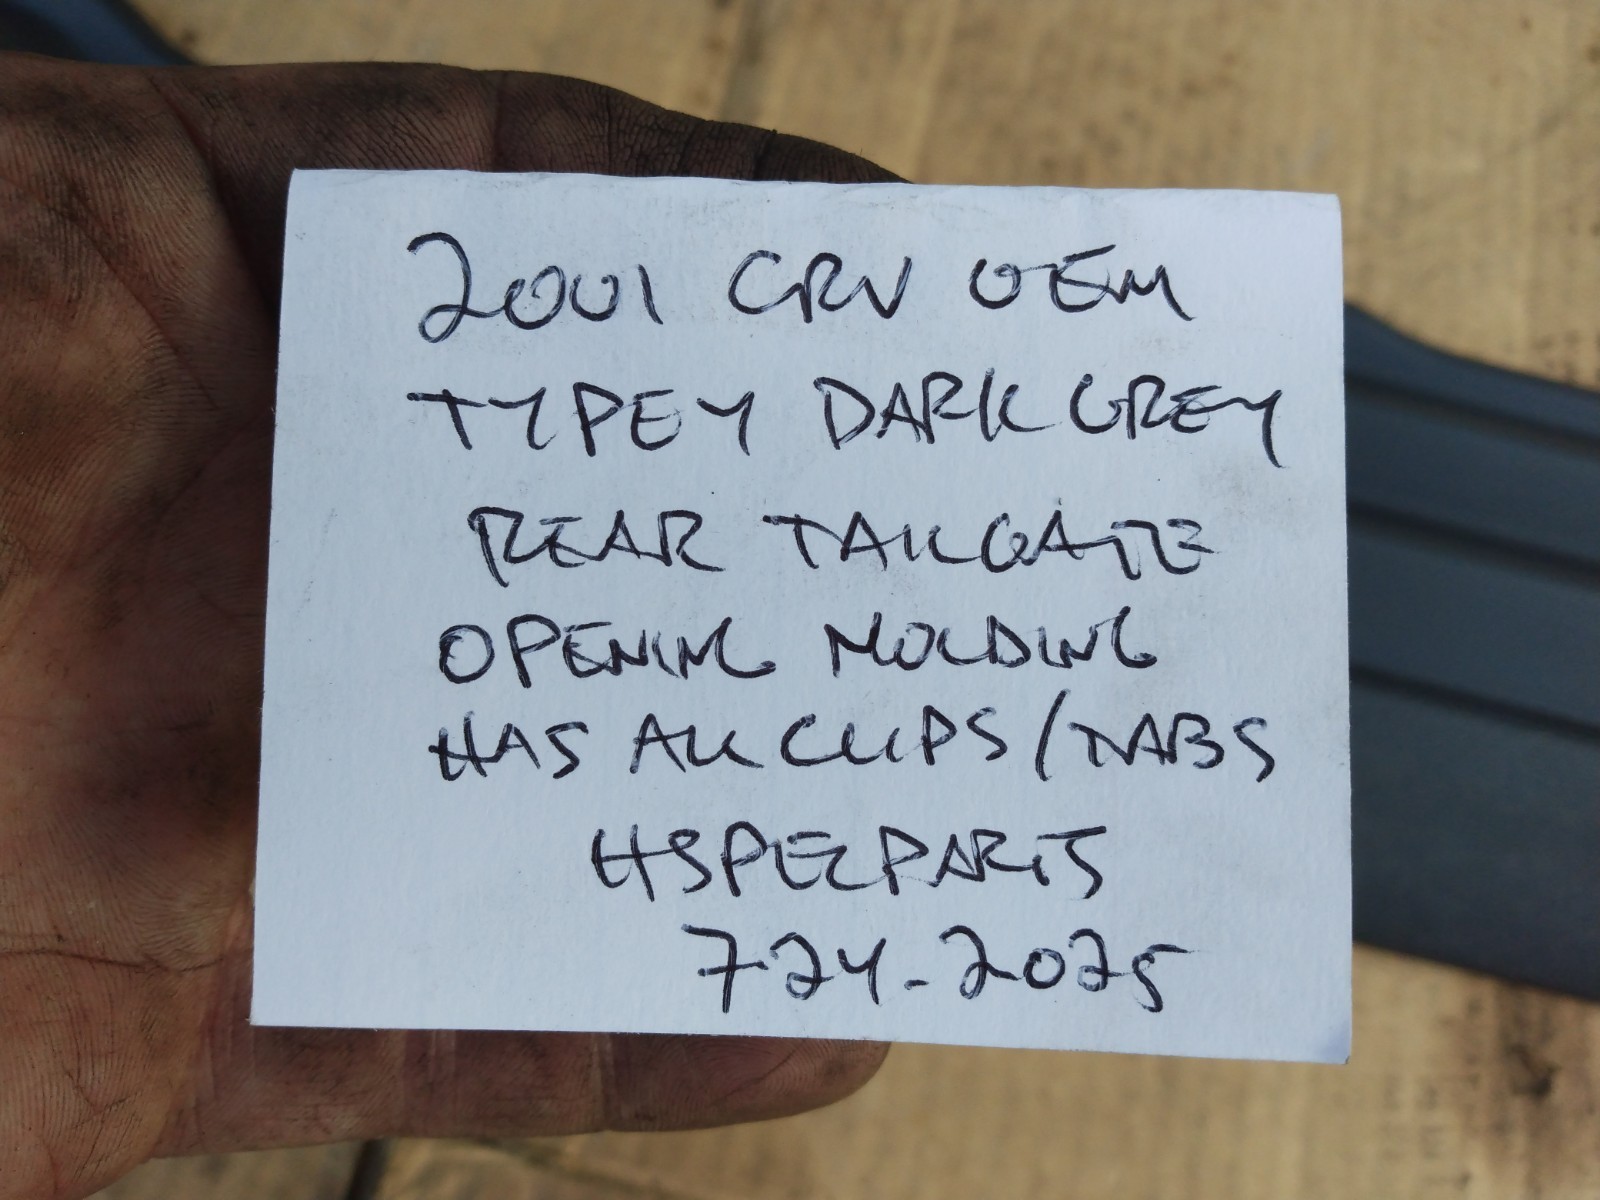 2001 CRV OEM
TYPE Y DARK GREY
REAR TAILGATE
OPENING MOLDING
HAS ALL CLIPS/TABS
HSPECPARTS
7-24-2025